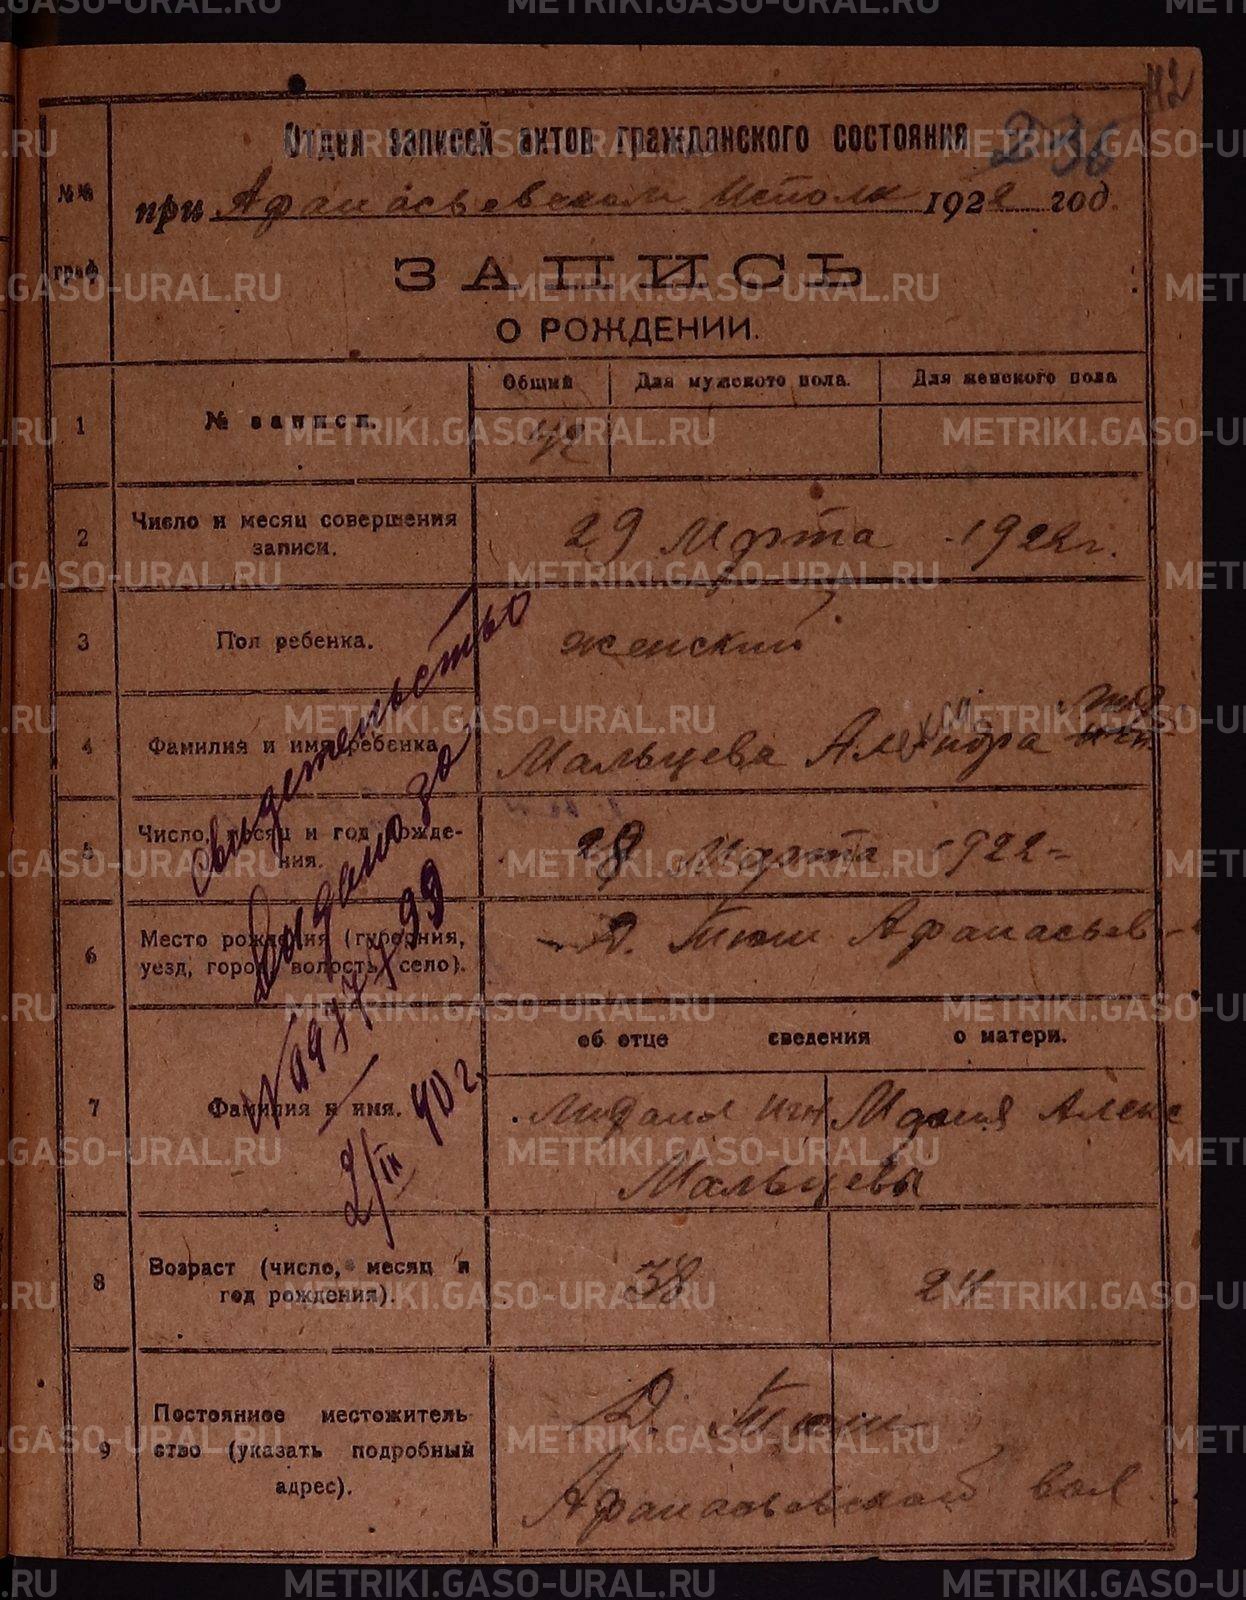 42
236
Отдел записей актов гражданского состояния
№№ граф
при Афанасьевском Исполк 1922 год.
ЗАПИСЬ
О РОЖДЕНИИ.
1 № записи.
Общий Для мужского пола. Для женского пола
42
2 Число и месяц совершения записи.
29 Марта 1922 г.
3 Пол ребенка.
женский
4 Фамилия и имя ребенка
Мальцева Александра
5 Число, месяц и год рождения.
28 Марта 1922
6 Место рождения (губерния, уезд, город, волость, село).
Д. Тюш Афанасьев
об отце сведения о матери.
7 Фамилия и имя.
Мальцевы
Мария Алекс
8 Возраст (число, месяц и год рождения).
38
24
9 Постоянное местожительство (указать подробный адрес).
Д. Тюш
Афанасьевской вол
свидетельство
выдано за
2/III 40 г.
METRIKI.GASO-URAL.RU